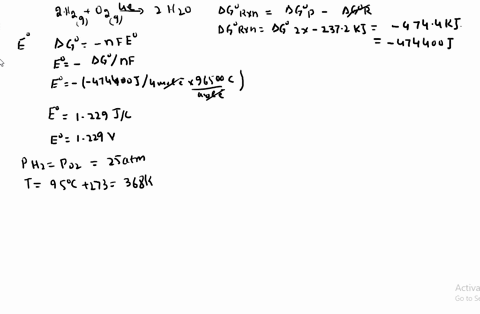 2H2(g) + O2(g) → 2 H2O ΔG°Rxn = ΔG°P - ΔG°R
ΔG°Rxn = ΔG° 2x -237.2 KJ = -474.4KJ
= -474400J
E° ΔG° = -nFE°
E° = - ΔG°/nF
E° = -(-474400J / 4mole x 96500C / mole)
E° = 1.229 J/C
E° = 1.229 V
PH2 = PO2 = 25atm
T = 95°C +273 = 368K
Activa
Go to Se